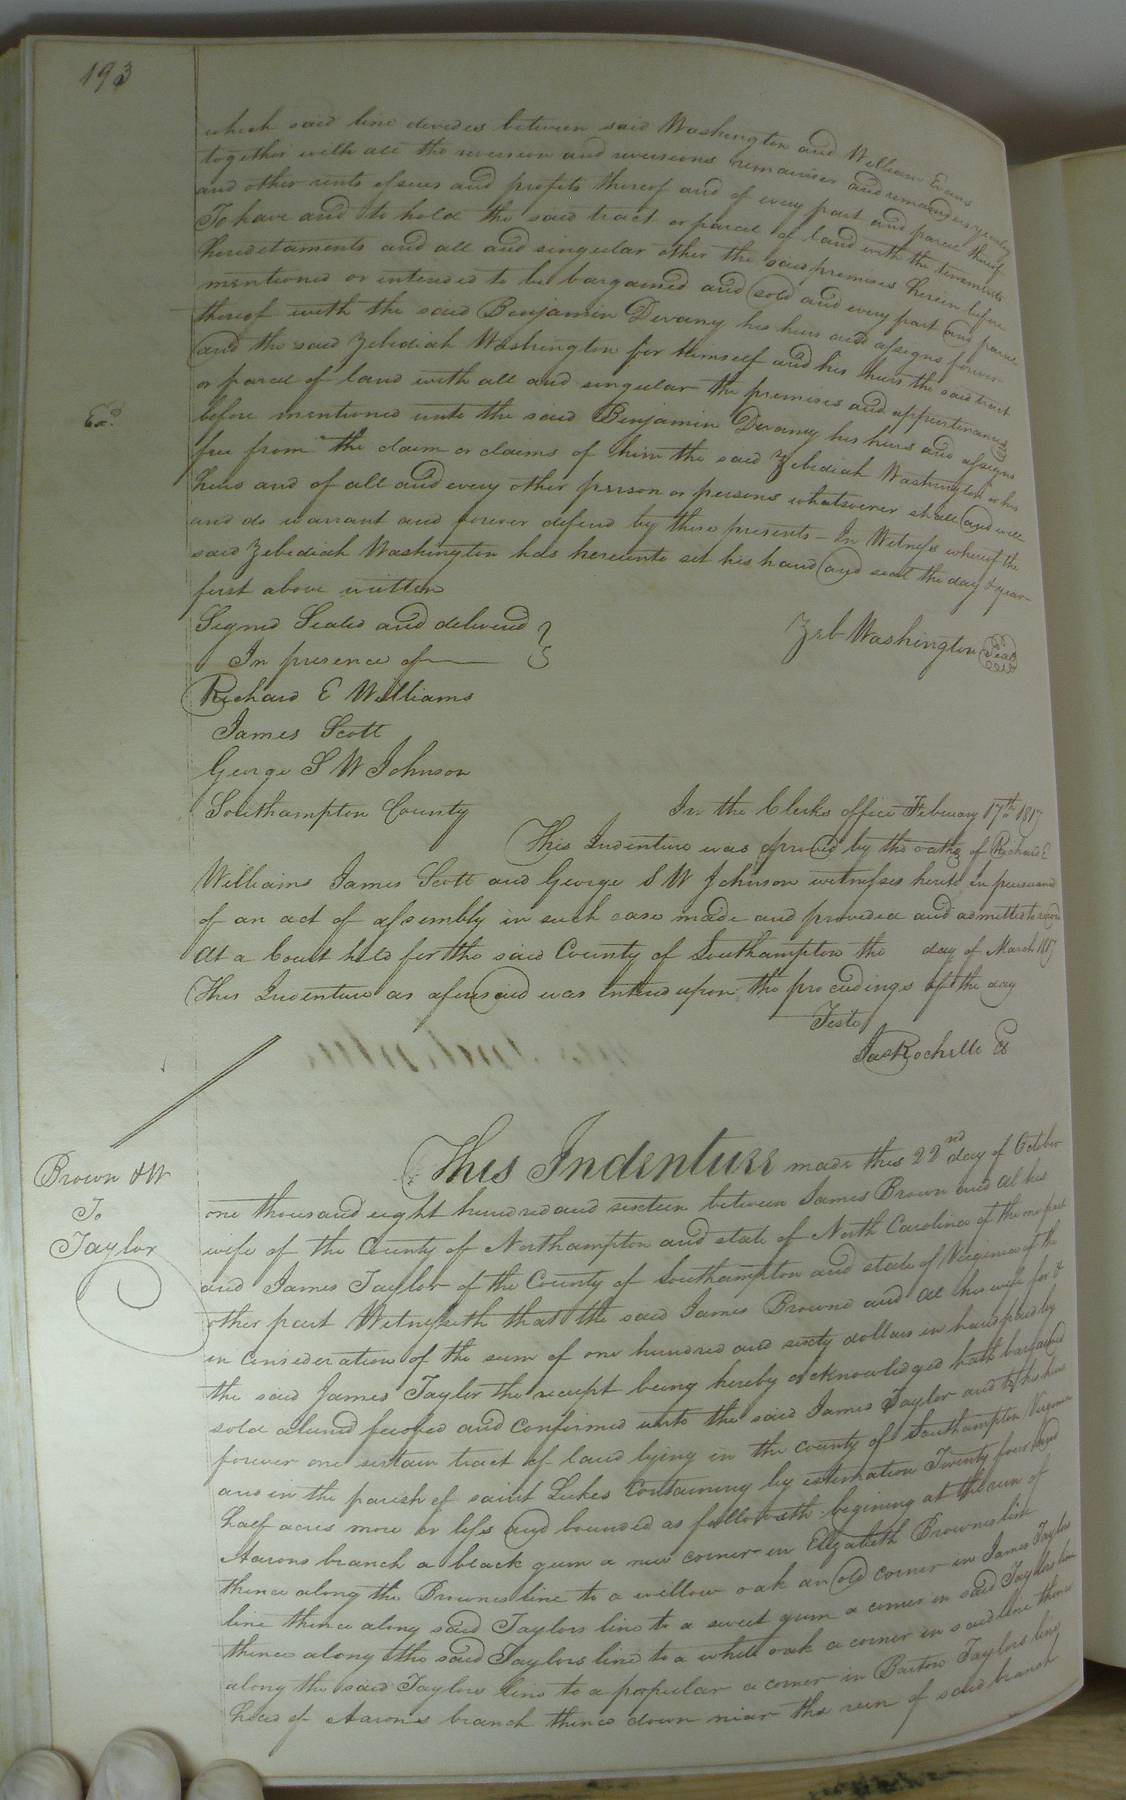 193
which said line devides between said Washington and William Evans
together with all the reversion and reversions remainder and remainders yearly
and other rents issues and profits thereof and of every part and parcel thereof
To have and to hold the said tract or parcel of land with the tenements
hereditaments and all and singular other the said premises herein before
mentioned or intended to be bargained and sold and every part and parcel
thereof with the said Benjamin Devany his heirs and assigns forever
and the said Zebediah Washington for himself and his heirs the said tract
or parcel of land with all and singular the premises and appurtinances
Exd.
before mentioned unto the said Benjamin Devaney his heirs and assigns
free from the claim or claims of him the said Zebediah Washington or his
heirs and of all and every other person or persons whatsoever shall and will
and do warrant and forever defend by these presents - In Witness whereof the
said Zebediah Washington has hereunto set his hand and seal the day & year
first above written
Signed Sealed and delivered
In presence of
Zeb Washington Seal
Richard E Williams
James Scott
George S W Johnson
Southampton County
In the Clerks office February 17th 1817
This Indenture was proved by the oaths of Richard E
Williams James Scott and George S W Johnson witnesses hereto in pursuance
of an act of assembly in such case made and provided and admitted to record
At a Court held for the said County of Southampton the day of March 1817
This Indenture as aforesaid was entered upon the proceedings of the day
Teste
Jas Rochelle Cl
Brown & W
To
Taylor
This Indenture made this 22nd day of October
one thousand eight hundred and sixteen between James Brown and Al his
wife of the County of Northampton and state of North Carolina of the one part
and James Taylor of the County of Southampton and state of Virginia of the
other part Witnesseth that the said James Browne and Al his wife for &
in consideration of the sum of one hundred and sixty dollars in hand paid by
the said James Taylor the receipt being hereby acknowledged hath bargained
sold aliend feofed and confirmed unto the said James Taylor and to his heirs
forever one sertain tract of land lying in the county of Southampton Virginia
and in the parish of saint Lukes Containing by estemation Twenty four and
half acres more or less and bounded as followeth begining at the run of
Aarons branch a black gum a new corner in Elizabeth Brownes line
thence along the Brownes line to a willow oak an old corner in James Taylors
line thence along said Taylors line to a sweet gum a corner in said Taylors line
thence along the said Taylors line to a white oak a corner in said line thence
along the said Taylors line to a popular a corner in Barton Taylors line
head of Aarons branch thence down near the run of said branch